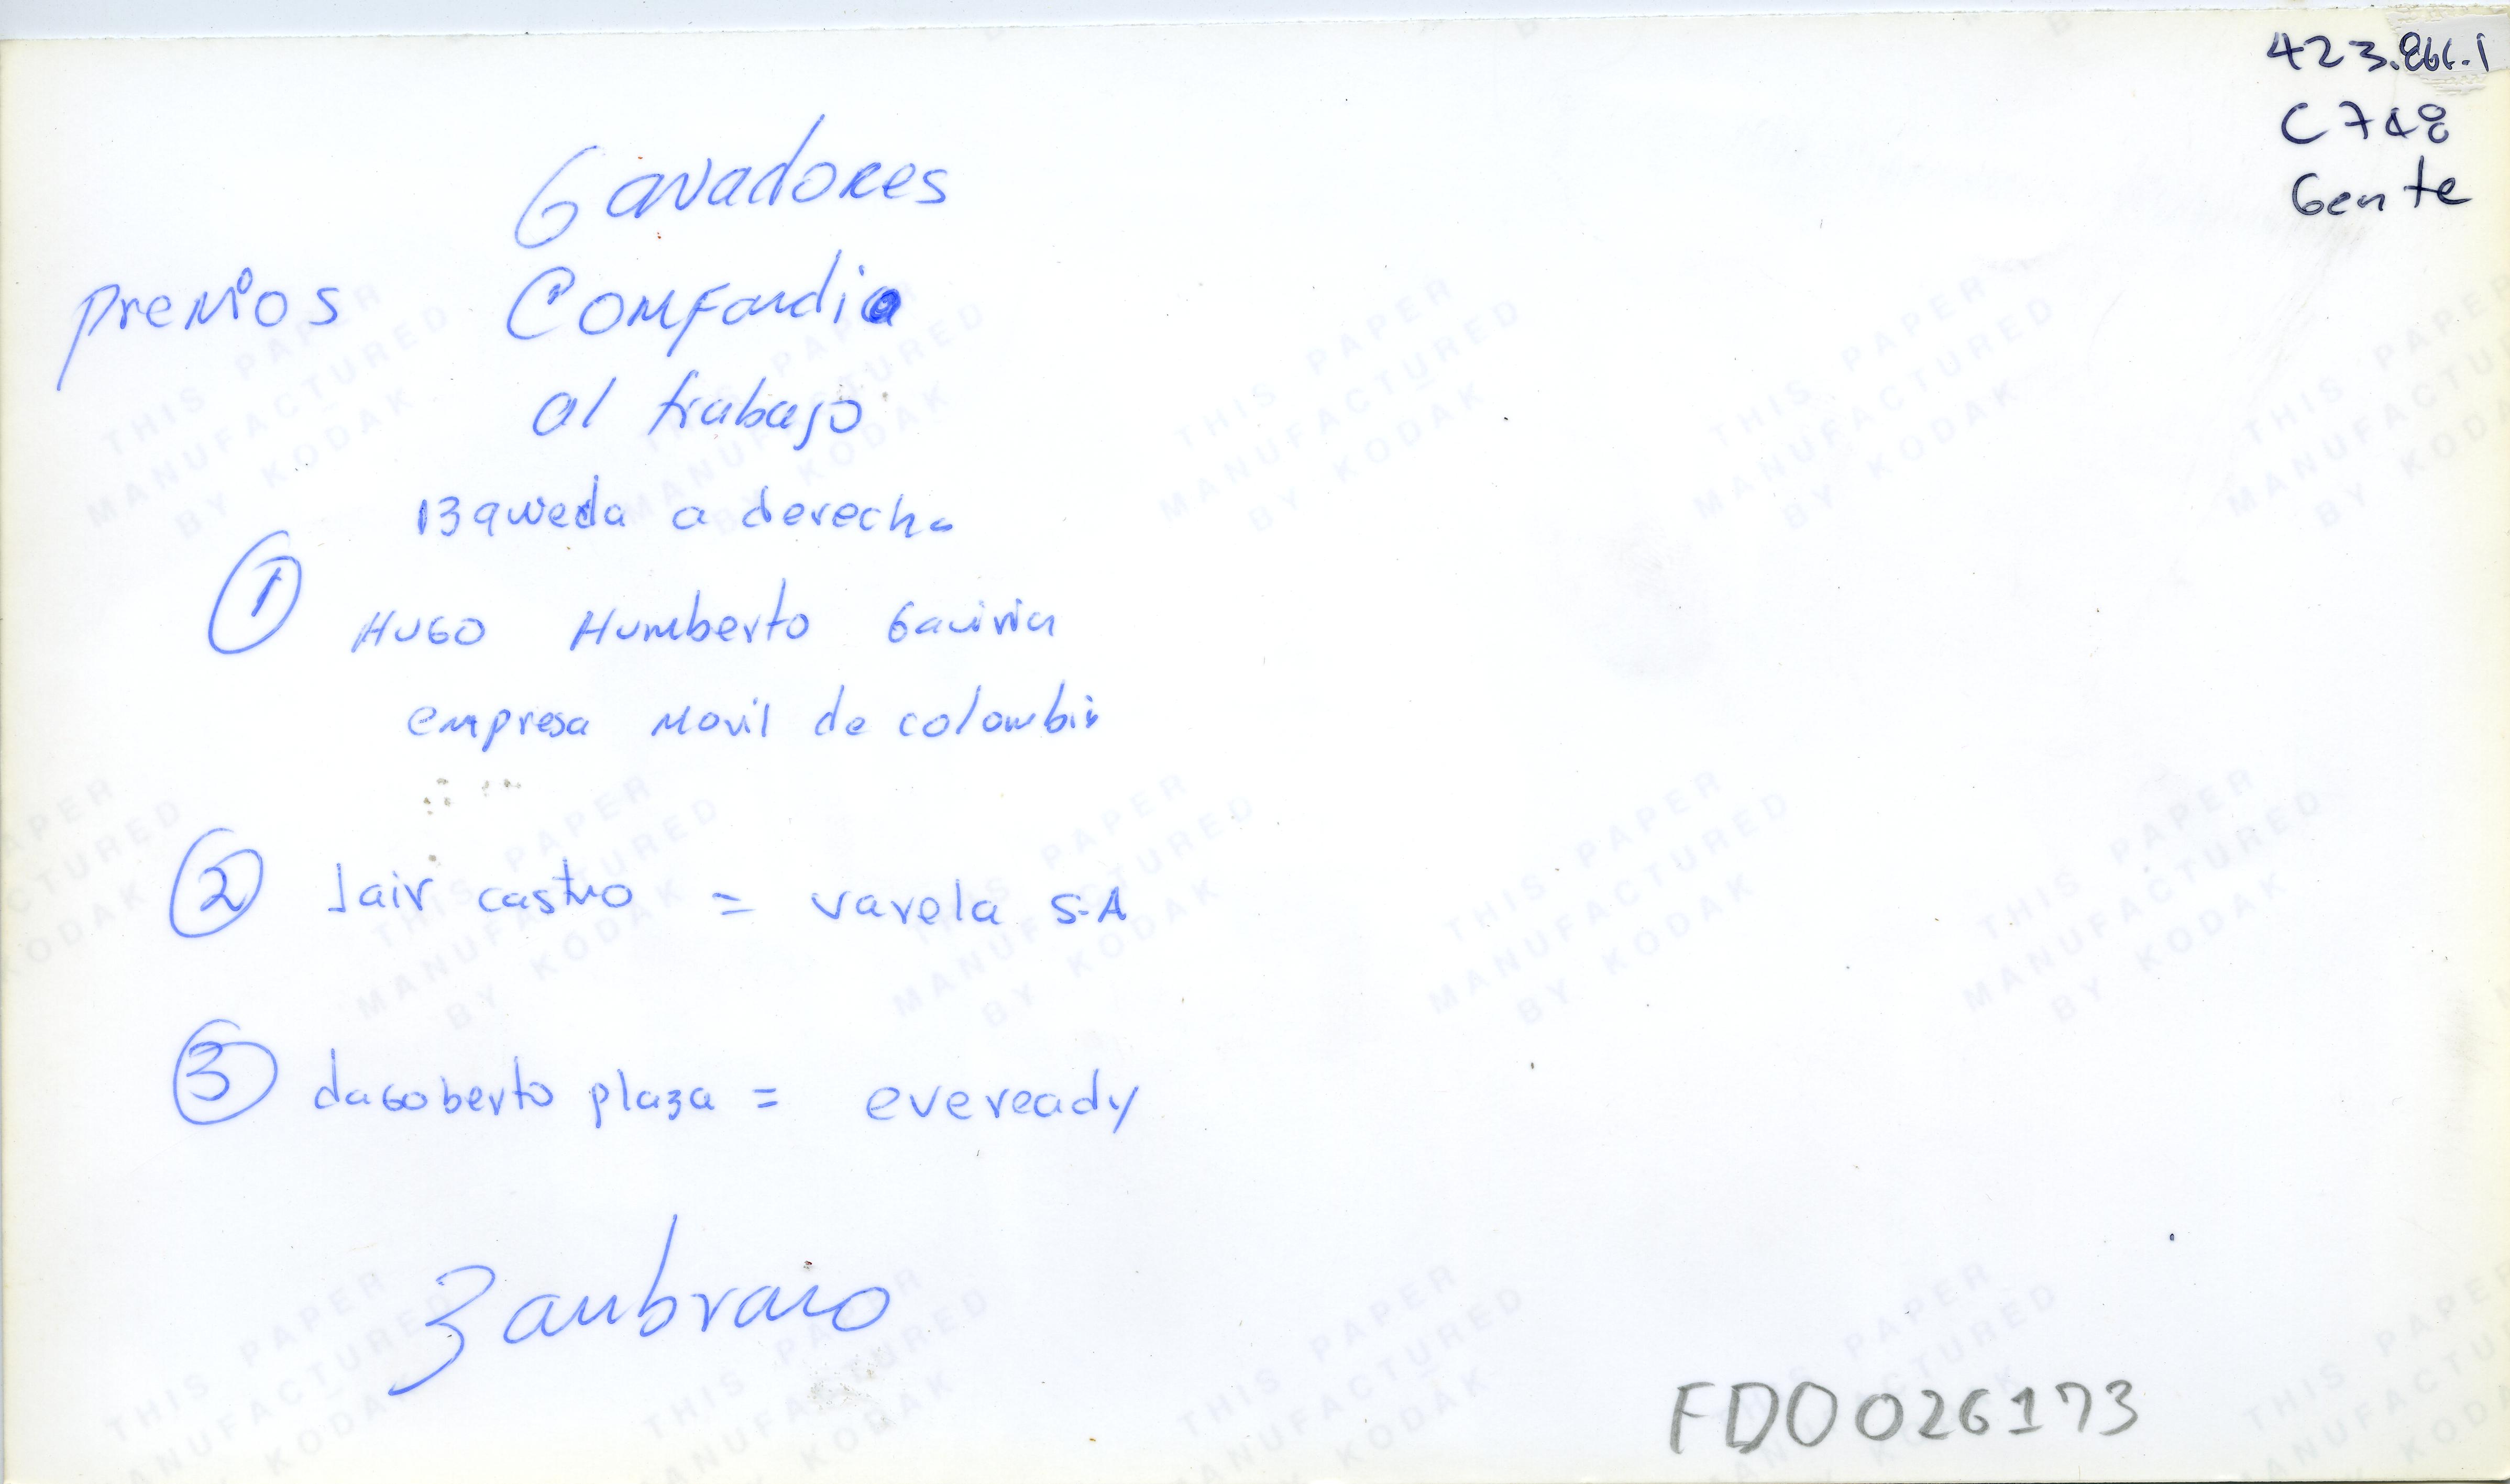 423.866.1
C748
Gente
Ganadores
premios Comfandia
al trabajo
izqueda a derecha
① HUGO Humberto Gaviria
empresa Movil de colombia
② Jair castro = varela S.A
③ dagoberto plaza = eveready
Zambrano
FD0026173
THIS PAPER
MANUFACTURED
BY KODAK